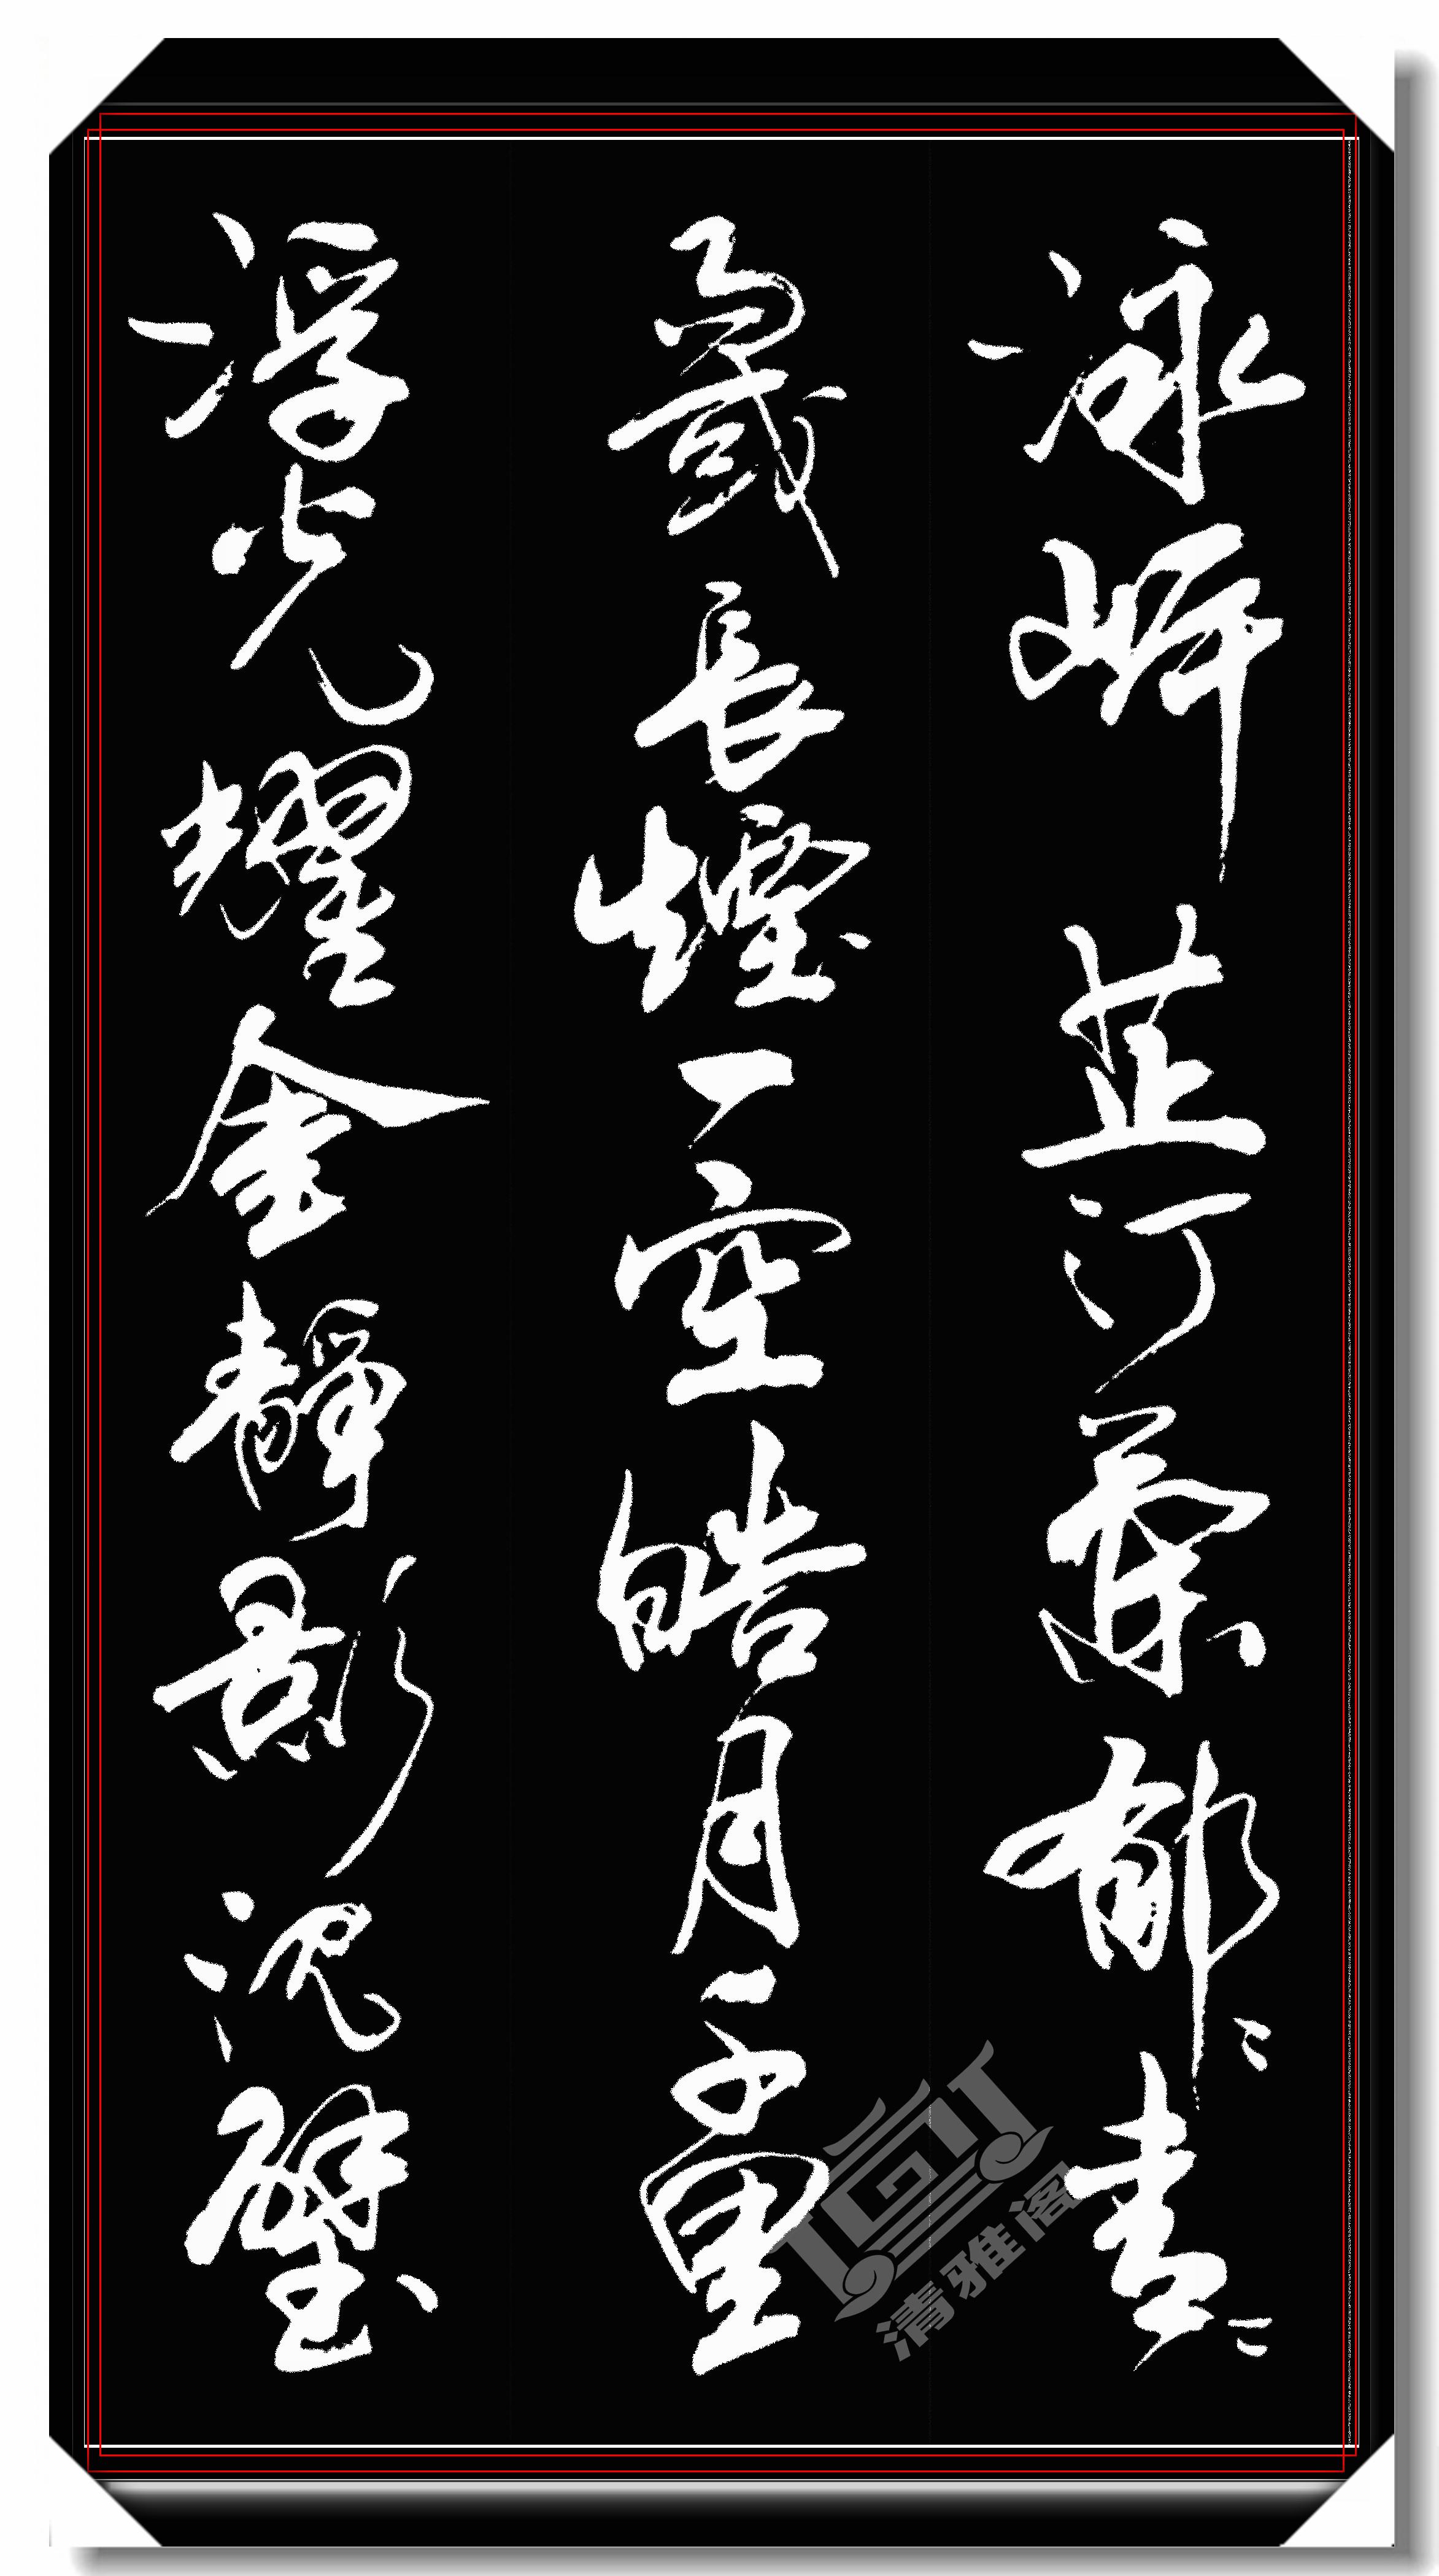 泳岸芷汀蘭郁〻青〻
或長煙一空皓月千里
浮光耀金靜影沉璧
清雅阁